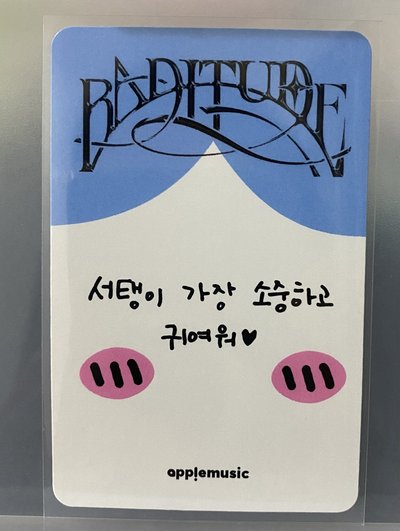 BADITUDE
서탱이 가장 소중하고
귀여워♥
applemusic